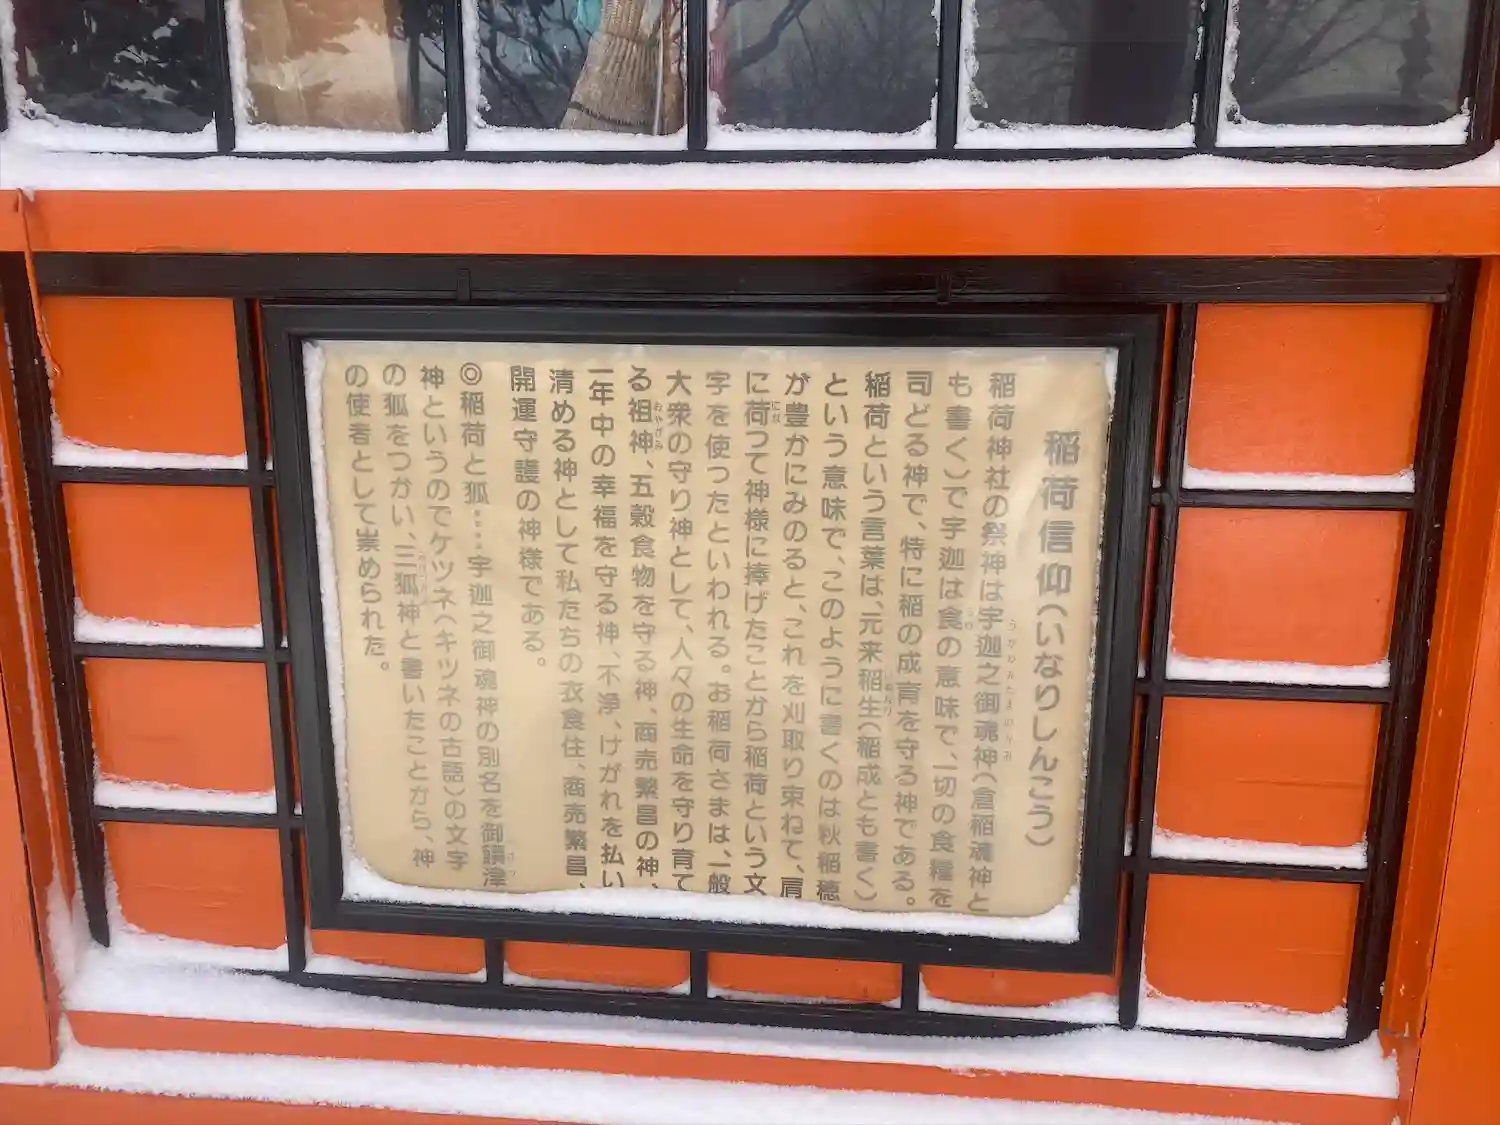 稲荷信仰(いなりしんこう)
稲荷神社の祭神は宇迦之御魂神(倉稲魂神と
も書く)で宇迦は食の意味で、一切の食糧を
司どる神で、特に稲の成育を守る神である。
稲荷という言葉は、元来稲生(稲成とも書く)
という意味で、このように書くのは秋稲穂
が豊かにみのると、これを刈取り束ねて、肩
に荷つて神様に捧げたことから稲荷という文
字を使つたといわれる。お稲荷さまは、一般
大衆の守り神として、人々の生命を守り育て
る祖神、五穀食物を守る神、商売繁昌の神、
一年中の幸福を守る神、不浄、けがれを払い
清める神として私たちの衣食住、商売繁昌、
開運守護の神様である。
◎稲荷と狐……宇迦之御魂神の別名を御饌津
神というのでケツネ(キツネの古語)の文字
の狐をつかい、三狐神と書いたことから、神
の使者として崇められた。